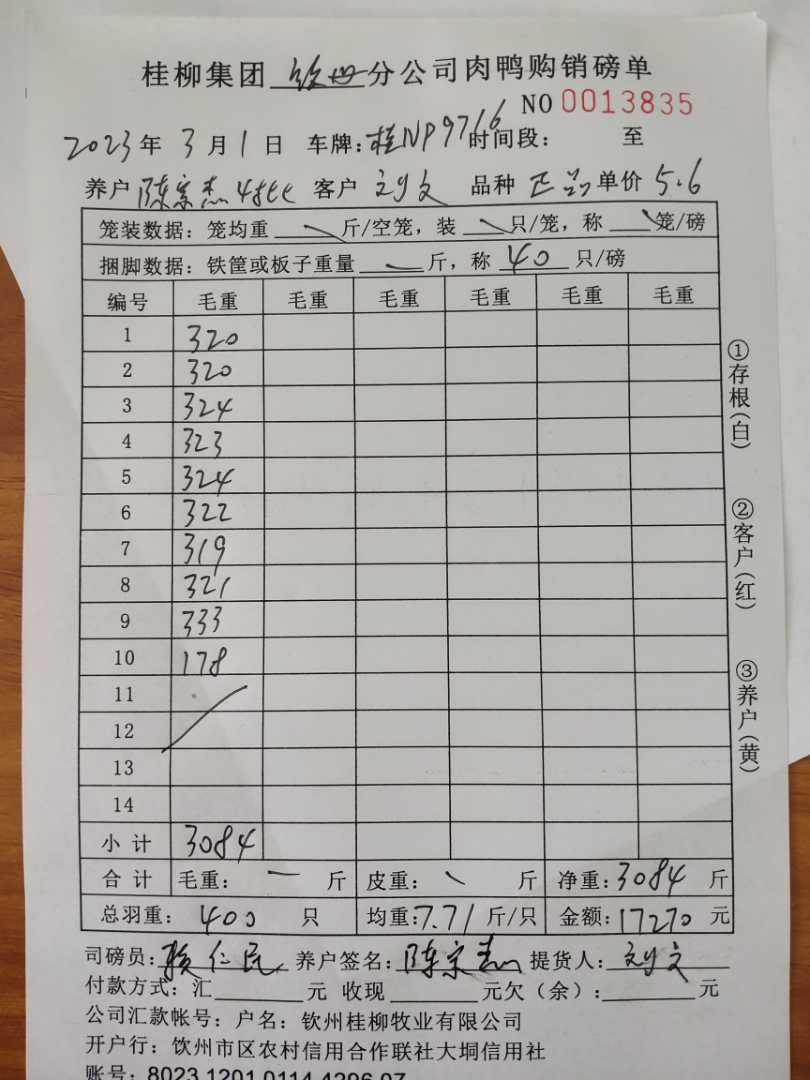 桂柳集团 钦州 分公司肉鸭购销磅单
NO 0013835
2023 年 3 月 1 日 车牌:桂NP9716 时间段: 至
养户 陈宗杰 客户 刘文 品种 正品 单价 5.6
笼装数据: 笼均重 斤/空笼, 装 只/笼, 称 笼/磅
捆脚数据: 铁筐或板子重量 斤, 称 40 只/磅
编号 毛重 毛重 毛重 毛重 毛重 毛重
1 320
2 320
3 324
4 323
5 324
6 322
7 319
8 321
9 333
10 178
11
12
13
14
小计 3084
合计 毛重: 斤 皮重: 斤 净重:3084 斤
总羽重: 400 只 均重:7.71 斤/只 金额:17270 元
司磅员: 仁民 养户签名: 陈宗杰 提货人: 刘文
付款方式: 汇 元 收现 元欠(余): 元
公司汇款帐号: 户名: 钦州桂柳牧业有限公司
开户行: 钦州市区农村信用合作联社大垌信用社
账号: 8023 1201 0114 4296 07
①存根(白)
②客户(红)
③养户(黄)